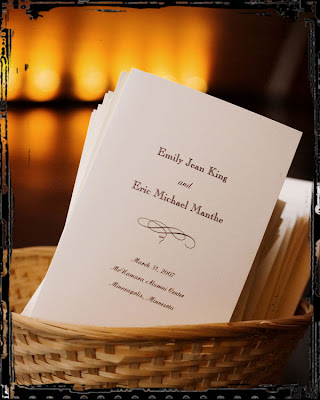 Emily Jean King
and
Eric Michael Manthe
March 31, 2007
McNamara Alumni Center
Minneapolis, Minnesota